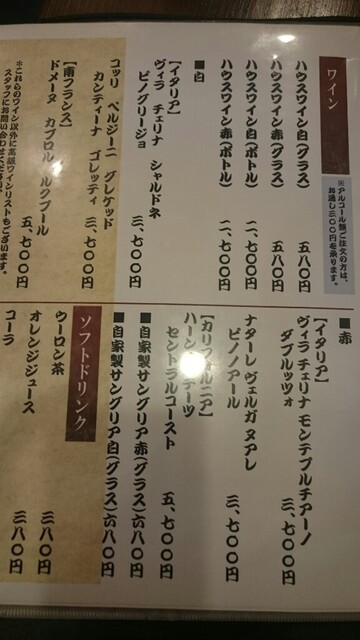 ワイン
※アルコール類ご注文の方は、
お通し三〇〇円を承ります。
ハウスワイン白(グラス) 五八〇円
ハウスワイン赤(グラス) 五八〇円
ハウスワイン白(ボトル) 二、七〇〇円
ハウスワイン赤(ボトル) 二、七〇〇円
■白
【イタリア】
ヴィラ チェリナ シャルドネ
ピノグリージョ 三、七〇〇円
コッリ ベルジーニ グレケット
カンティーナ ゴレッティ 三、七〇〇円
【南フランス】
ドメーヌ カブロル ルクプール
五、七〇〇円
※これらのワイン以外に高級ワインリストもございます。
スタッフにお問い合わせください。
■赤
【イタリア】
ヴィラ チェリナ モンテプルチアーノ
ダブルッツォ 三、七〇〇円
ナターレ ヴェルガ ヌアレ
ピノノアール 三、七〇〇円
【カリフォルニア】
セントラルコースト 五、七〇〇円
■自家製サングリア赤(グラス)六八〇円
■自家製サングリア白(グラス)六八〇円
ソフトドリンク
ウーロン茶 三八〇円
オレンジジュース 三八〇円
コーラ 三八〇円